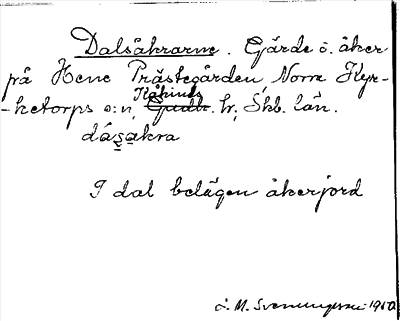 Dalsåkrarne. Gärde o. åker
på Hene Prästegården Norra Kyr-
-ketorps s:n, Kåkinds hr, Skb. län.
dásakra
I dal belägen åkerjord
L. M. Svenungsson 1950